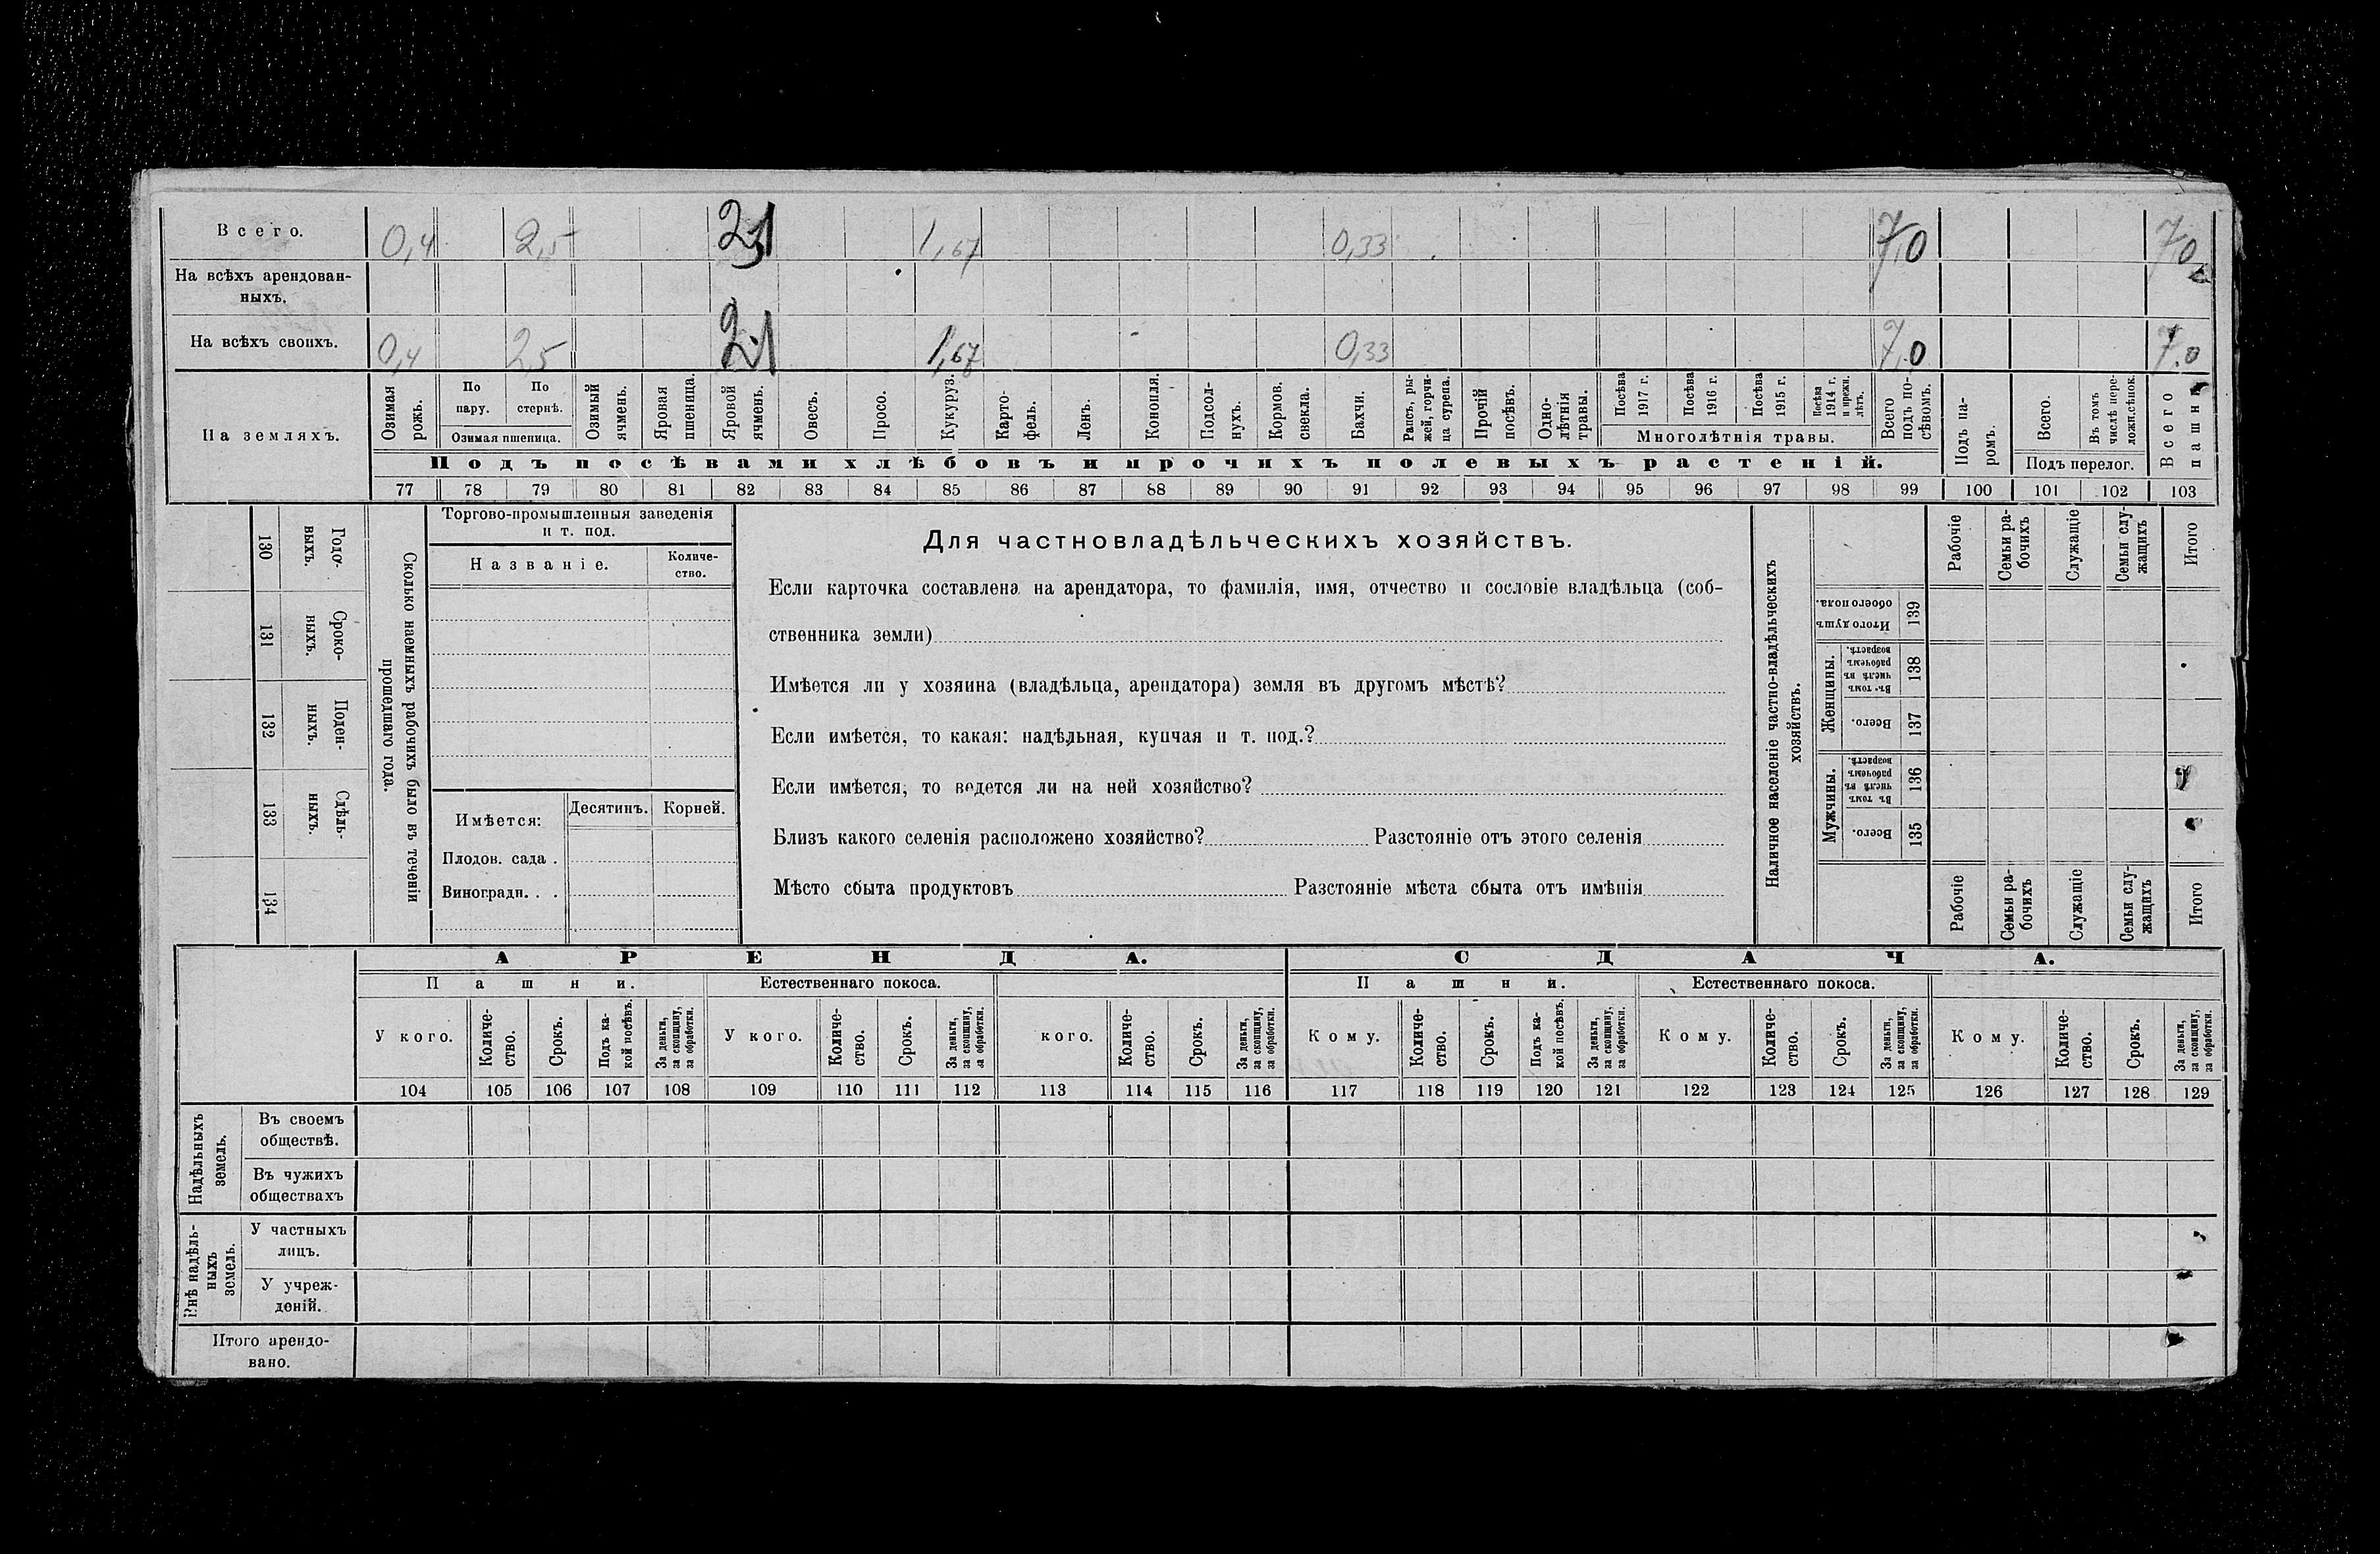 Всего. 0,4 2,5 2,1 1,67 0,33 7,0 7,0
На всѣхъ арендован-
ныхъ.
На всѣхъ своихъ. 0,4 2,5 2,1 1,67 0,33 7,0 7,0
На земляхъ.
Озимая рожь.
По пару.
По стернѣ.
Озимая пшеница.
Озимый ячмень.
Яровая пшеница.
Яровой ячмень.
Овесъ.
Просо.
Кукуруз.
Карто-
фель.
Ленъ.
Конопля.
Подсол-
нухъ.
Кормов. свекла.
Бахчи.
Рапсъ, ры-
жей, горчи-
ца сурепа.
Прочій посѣвъ.
Одно-
лѣтнія
травы.
Посѣва 1917 г.
Посѣва 1916 г.
Посѣва 1915 г.
Посѣва 1914 г. и прежн. лѣтъ.
Многолѣтнія травы.
Всего подъ по-
сѣвомъ.
Подъ посѣвами хлѣбовъ и прочихъ полевыхъ растеній.
Подъ па-
ромъ.
Всего.
Въ томъ числѣ пере-
ложн.сѣнок.
Подъ перелог.
Всего пашни
77 78 79 80 81 82 83 84 85 86 87 88 89 90 91 92 93 94 95 96 97 98 99 100 101 102 103
130 Годо-
выхъ.
131 Сроко-
ныхъ.
132 Поден-
ныхъ.
133 Сдѣль-
ныхъ.
134
Сколько наемныхъ рабочихъ было въ теченіи
прошедшаго года.
Торгово-промышленныя заведенія
и т. под.
Названіе.
Количе-
ство.
Имѣется: Десятинъ. Корней.
Плодов. сада .
Виноградн. . .
Для частновладѣльческихъ хозяйствъ.
Если карточка составлена на арендатора, то фамилія, имя, отчество и сословіе владѣльца (соб-
ственника земли)
Имѣется ли у хозяина (владѣльца, арендатора) земля въ другомъ мѣстѣ?
Если имѣется, то какая: надѣльная, купчая и т. под.?
Если имѣется, то ведется ли на ней хозяйство?
Близъ какого селенія расположено хозяйство? Разстояніе отъ этого селенія
Мѣсто сбыта продуктовъ Разстояніе мѣста сбыта отъ имѣнія
Наличное населеніе частно-владѣльческихъ
хозяйствъ.
Рабочіе
Семьи ра-
бочихъ
Служащіе
Семьи слу-
жащихъ
Итого
Итого душъ обоего пола. 139
Женщины.
Въ томъ числѣ въ рабочемъ возрастѣ. 138
Всего. 137
Мужчины.
Въ томъ числѣ въ рабочемъ возрастѣ. 136
Всего. 135
Рабочіе
Семьи ра-
бочихъ
Служащіе
Семьи слу-
жащихъ
Итого
АРЕНДА. СДАЧА.
Пашни. Естественнаго покоса. Пашни. Естественнаго покоса.
У кого.
Количе-
ство.
Срокъ.
Подъ ка-
кой посѣвъ.
За деньги,
за скопщину,
за обработки.
У кого.
Количе-
ство.
Срокъ.
За деньги,
за скопщину,
за обработки.
кого.
Количе-
ство.
Срокъ.
За деньги,
за скопщину,
за обработки.
Кому.
Количе-
ство.
Срокъ.
Подъ ка-
кой посѣвъ.
За деньги,
за скопщину,
за обработки.
Кому.
Количе-
ство.
Срокъ.
За деньги,
за скопщину,
за обработки.
Кому.
Количе-
ство.
Срокъ.
За деньги,
за скопщину,
за обработки.
104 105 106 107 108 109 110 111 112 113 114 115 116 117 118 119 120 121 122 123 124 125 126 127 128 129
Надѣльныхъ
земель.
Въ своемъ
обществѣ.
Въ чужихъ
обществахъ
Внѣ надѣль-
ныхъ
земель.
У частныхъ
лицъ.
У учреж-
деній.
Итого арендо-
вано.